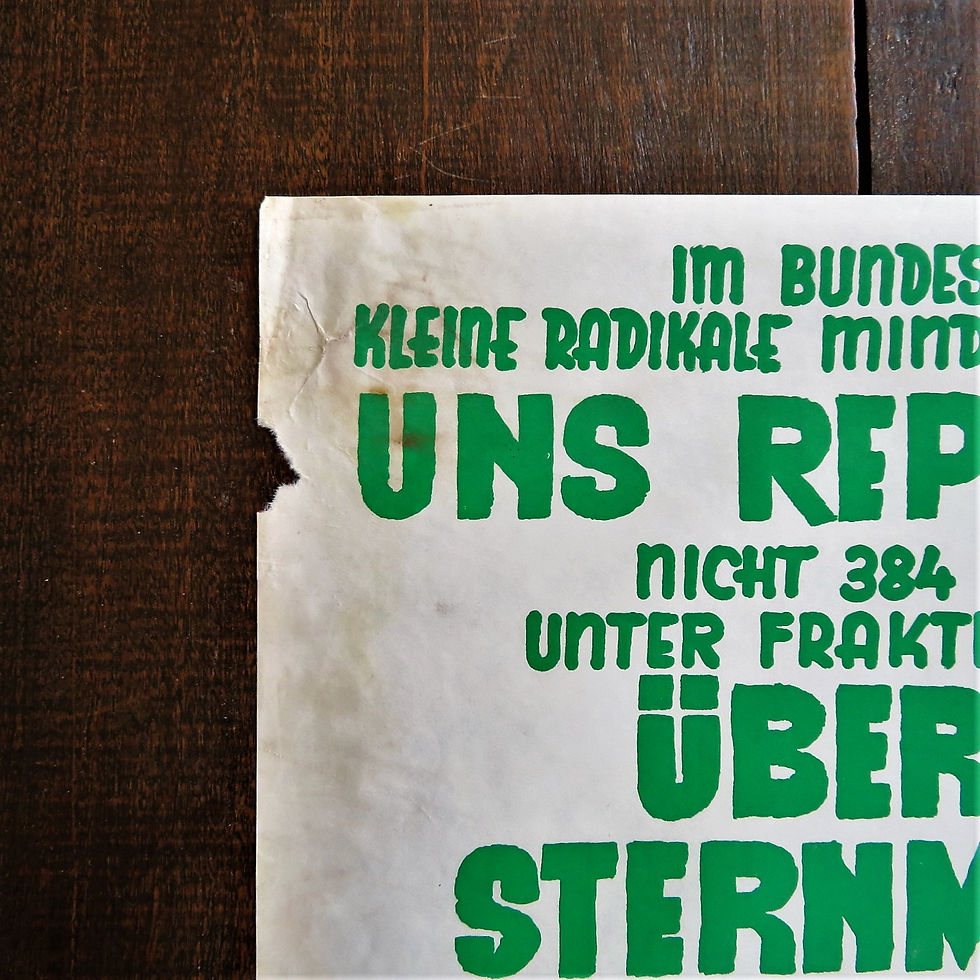 IM BUNDES
KLEINE RADIKALE MIND
UNS REP
NICHT 384
UNTER FRAKTI
ÜBER
STERNM